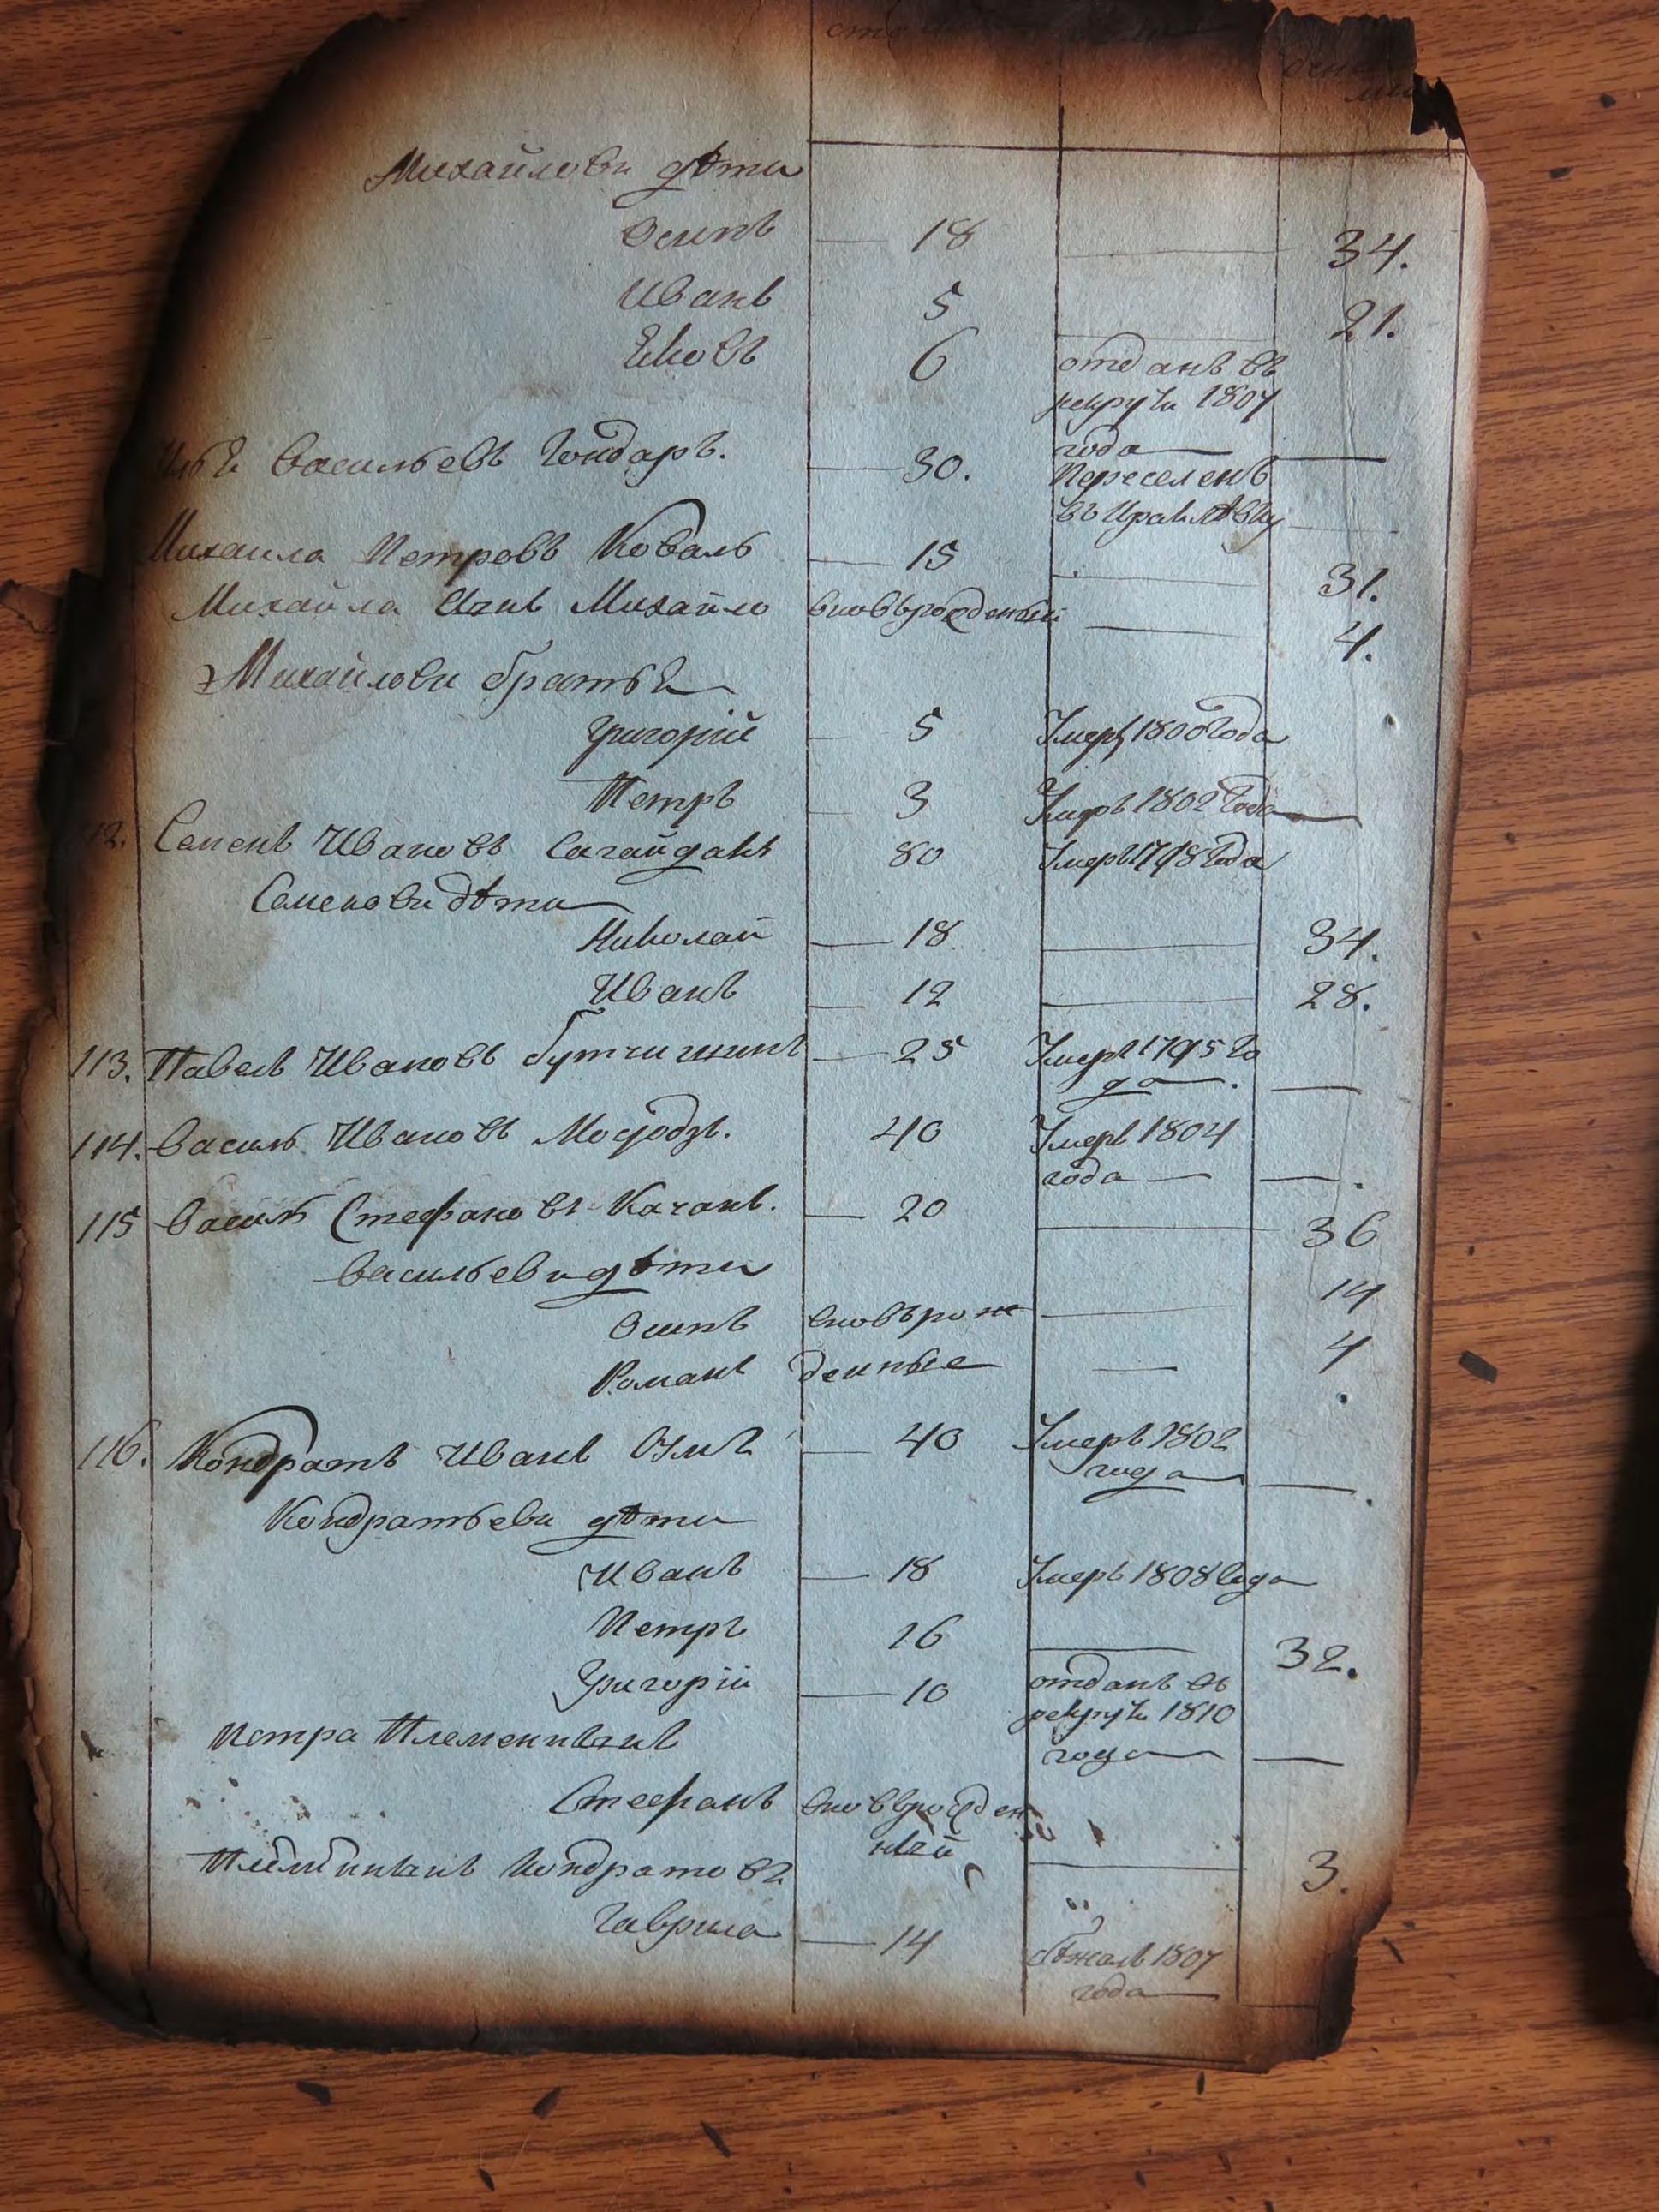 Михайлови дѣти
Осипъ — 18 — 34.
Иванъ 5 — 21.
Яковъ 6 отданъ въ
рекруты 1807
года —
Илья Васильевъ Гондаръ. — 30. Переселенъ
въ
Михаила Петровъ Коваль — 15 — 31.
Михайла сынъ Михайло вновьрожденый — 4.
Михайлови братья
Григорій — 5 Умеръ 1800 года
Петръ — 3 Умеръ 1802 года —
112. Семенъ Ивановъ Сагайдакъ 80 Умеръ 1798 года
Семенови дѣти
Николай — 18 — 34.
Иванъ — 12 — 28.
113. Павелъ Ивановъ — 25 Умеръ 1795 го
да —. —
114. Василь Ивановъ 40 Умеръ 1804
года — —.
115 Василь Стефановъ Качанъ. — 20 — 36
Васильеви дѣти
Осипъ вновьрож — 14
Романъ денные — 4
116. Кондратъ Иванъ — 40 Умеръ 1802
года — —.
Кондратьеви дѣти
Иванъ — 18 Умеръ 1808 года
Петръ 16 — 32.
Григорій — 10 отданъ въ
рекруты 1810
года — —
Петра Племенникъ
Стефанъ вновьрожден
ный — 3.
Племінникъ Кондратовъ
Гаврила — 14 бѣжалъ 1807
года —